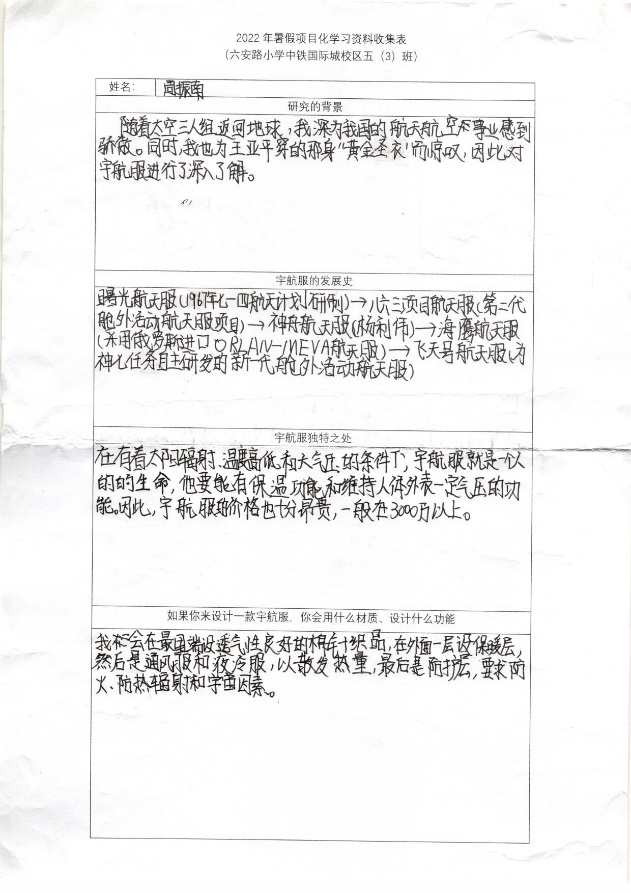 2022年暑假项目化学习资料收集表
（六安路小学中铁国际城校区五（3）班）
姓名： 周振南
研究的背景
随着太空三人组返回地球，我深为我国的航天航空事业感到
骄傲。同时，我也为王亚平穿的那身“黄金圣衣”而惊叹，因此对
宇航服进行了深入了解。
宇航服的发展史
曙光航天服(1967年七一四航天计划研制)→八六三项目航天服(第二代
舱外活动航天服项目)→神舟航天服(杨利伟)→海鹰航天服
(采用俄罗斯进口ORLAN-MEVA航天服)→飞天号航天服(为
神七任务自主研发的新一代舱外活动航天服)
宇航服独特之处
在有着太阳辐射、温度高低和大气压的条件下，宇航服就是一个人
的的生命，他要能有保温功能和维持人体外表一定气压的功
能。因此，宇航服的价格也十分昂贵，一般在3000万以上。
如果你来设计一款宇航服，你会用什么材质、设计什么功能
我会在最里端设透气性良好的棉针织品，在外面一层设保暖层，
然后是通风服和液冷服，以散发热量，最后是防护层，要求防
火、防热辐射和宇宙因素。